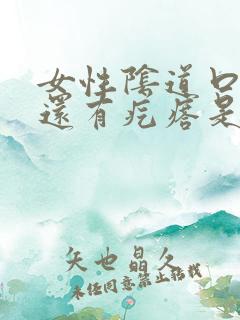 女性陰道口
還有疙瘩是
矢也晶久
未任同意禁止转载